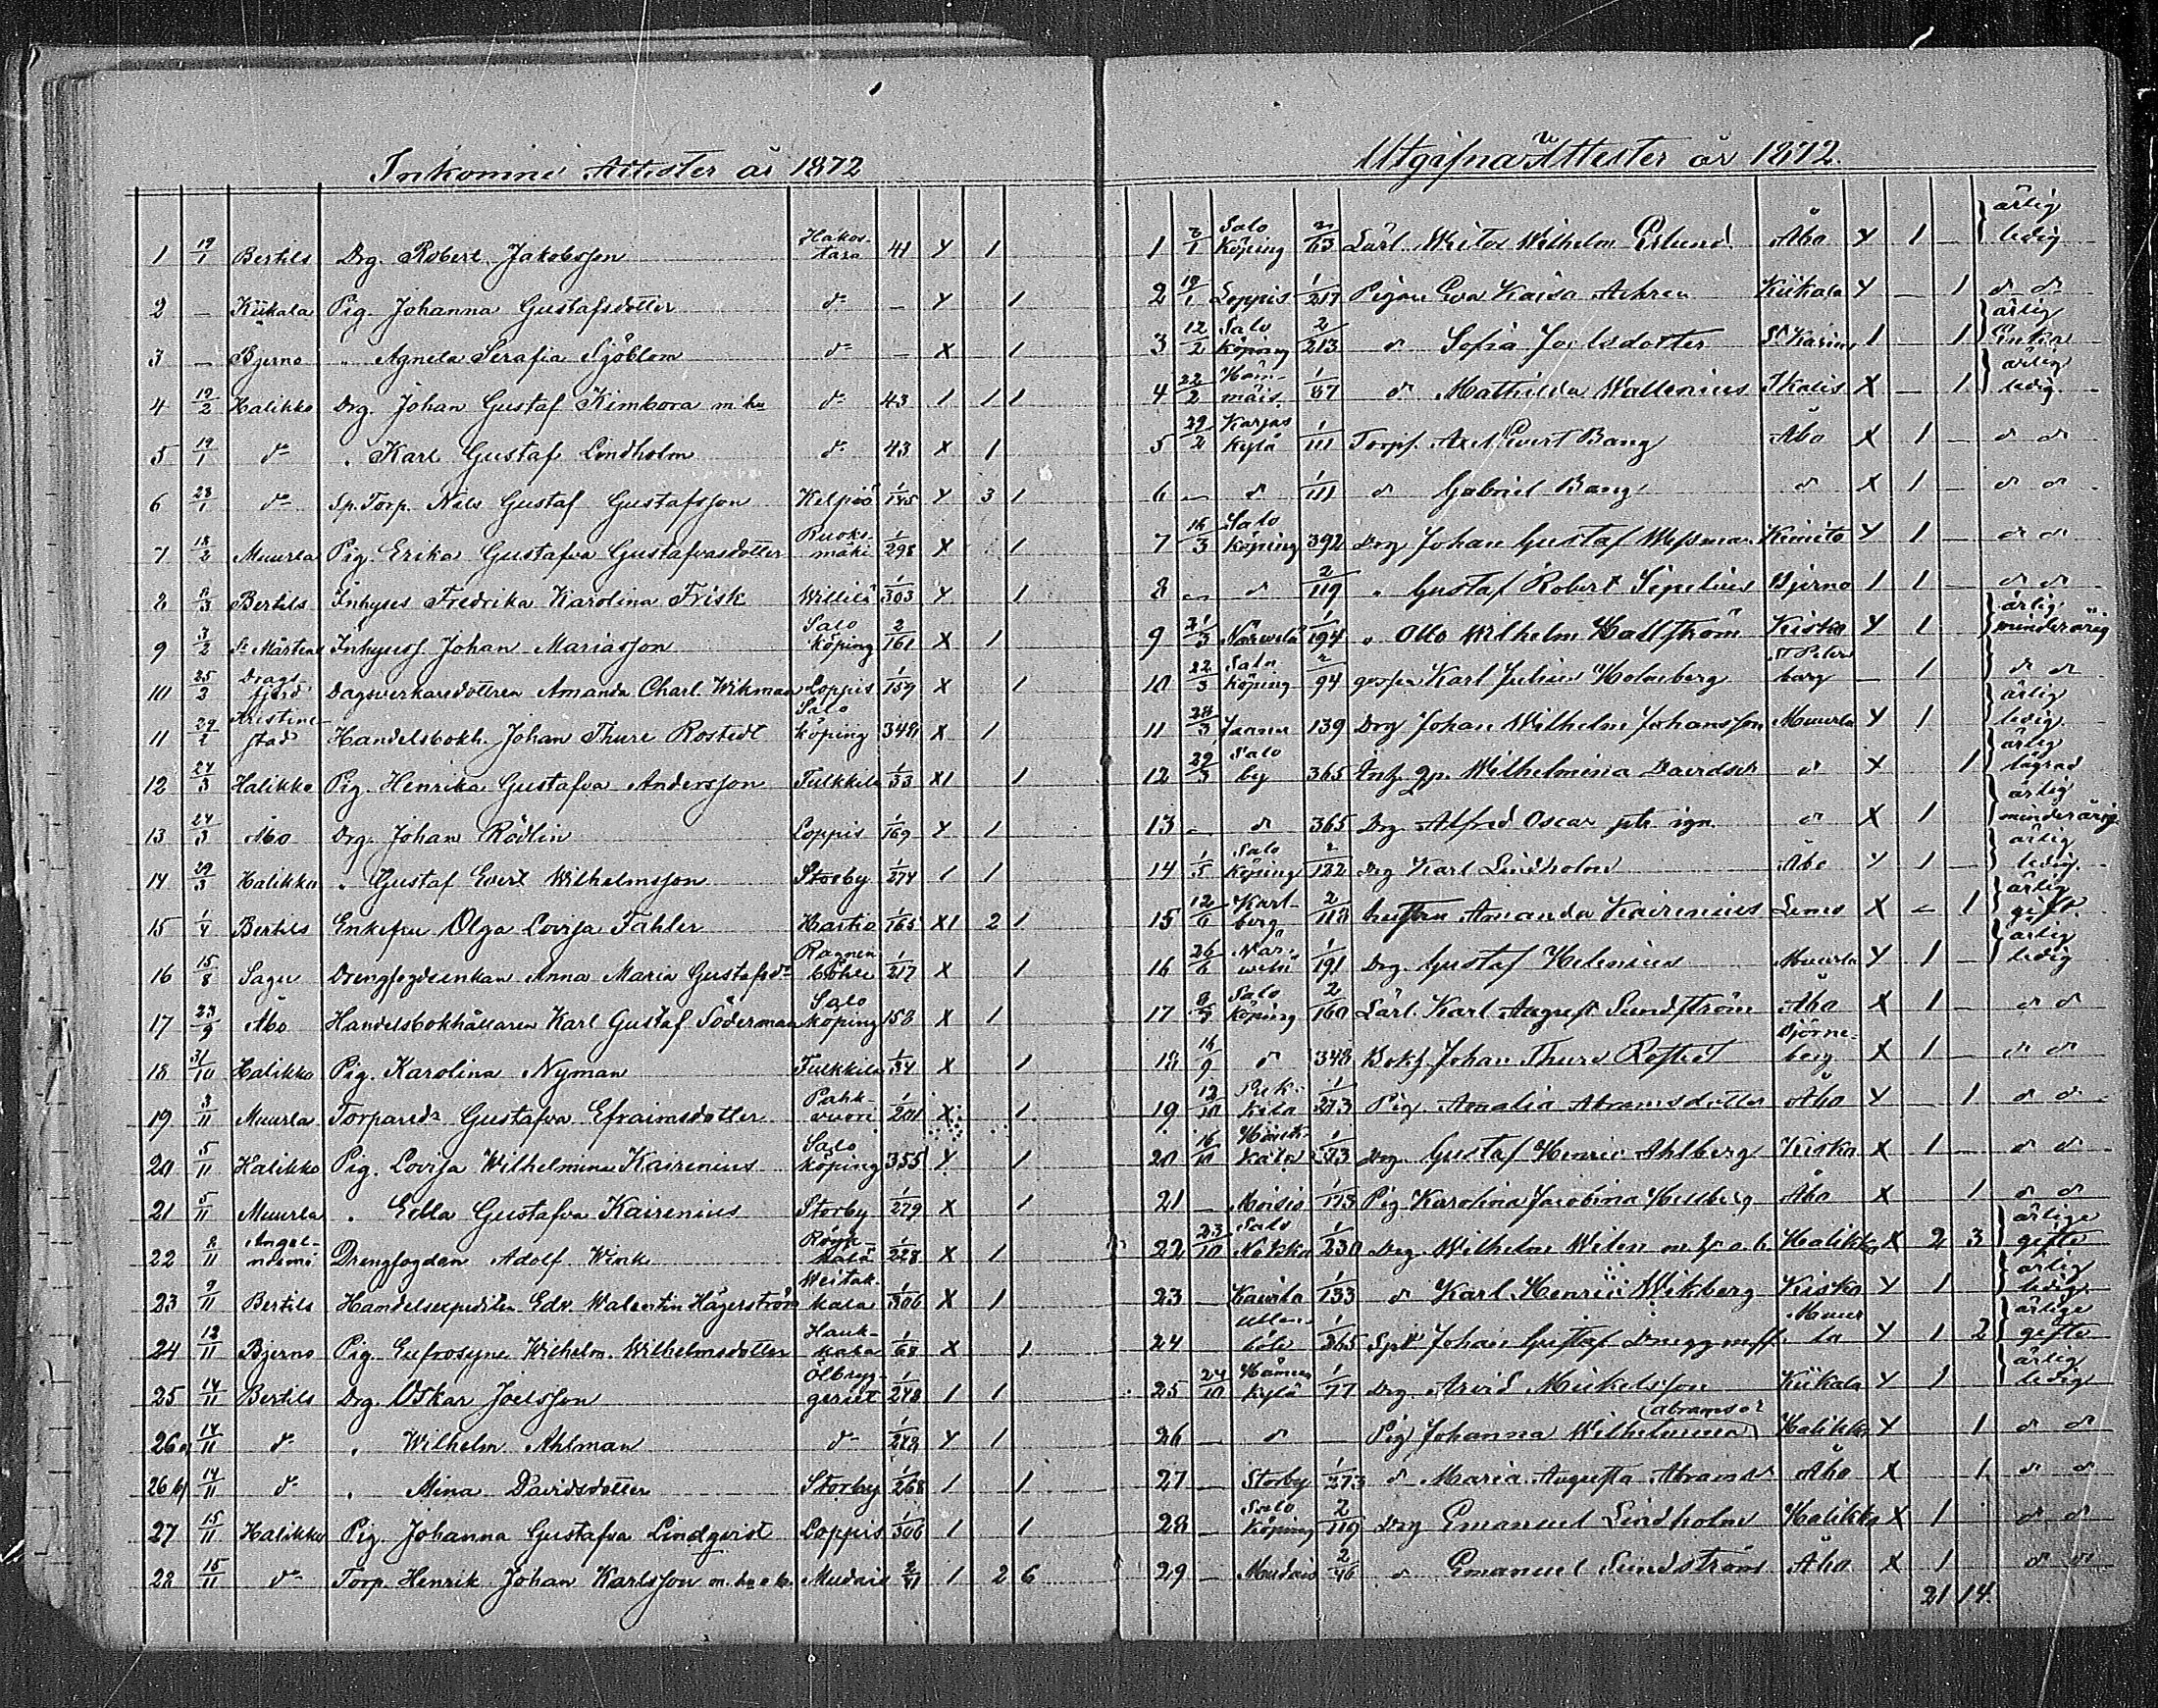 Inkomne Attester år 1872
1 19/1 Bertils Drg. Robert Jakobsson Hakostaro 41 Y 1
2 — Kiikala Pig. Johanna Gustafsdotter d:o — Y 1
3 — Bjerno " Agneta Serafia Sjöblom d:o — X 1
4 19/2 Halikko Drg. Johan Gustaf Kimbora m. hu d:o 43 1 1 1
5 19/1 d:o " Karl Gustaf Lindholm d:o 43 X 1
6 23/1 d:o Sp. Torp. Nils Gustaf Gustafsson Kelpiö 1/185 Y 3 1
7 18/2 Muurla Pig. Erika Gustafva Gustafvasdotter Ruoksmäki 1/298 X 1
8 8/3 Bertils Inhyses Fredrika Karolina Frisk Willilä 1/303 Y 1
9 3/2 St Mårtens Inhyses Johan Mariasson Salo köping 2/161 X 1
10 25/3 Dragsfjerd Dagsverkaredottren Amanda Charl. Wikman Loppis 1/159 X 1
11 29/2 Kristinestad Handelsbokh. Johan Thure Rostedt Salo köping 348 X 1
12 24/3 Halikko Pig. Henrika Gustafva Andersson Tulkkila 1/33 X1 1
13 24/3 Åbo Drg. Johan Rödlin Loppis 1/169 Y 1
14 29/3 Halikko " Gustaf Evert Wilhelmsson Storby 1/274 1 1
15 1/4 Bertils Enkefru Olga Lovisa Fahler Haitio 1/165 X1 2 1
16 15/8 Sagu Drengfogdeenkan Anna Maria Gustafsd:r Ragnenböhle 1/217 X 1
17 23/9 Åbo Handelsbokhållaren Karl Gustaf Söderman Salo köping 158 X 1
18 31/10 Halikko Pig. Karolina Nyman Tulkkila 1/34 X 1
19 3/11 Muurla Torpared:r Gustafva Efraimsdotter Pahkavuori 1/201 X 1
20 5/11 Halikko Pig. Lovisa Wilhelmina Kairenius Salo köping 355 Y 1
21 5/11 Muurla " Edla Gustafva Kairenius Storby 1/279 X 1
22 8/11 Angelniemi Drengfogden Adolf Wink 1/228 X 1
23 9/11 Bertils Handelsexpediten Edv. Walentin Hägerström Weitakkala 1/306 X 1
24 12/11 Bjerno Pig. Eufrosyne Wilhelm. Wilhelmsdotter Haukkala 1/68 X 1
25 14/11 Bertils Drg. Oskar Joelsson Ölbryggeriet 1/248 1 1
26 a) 14/11 d:o " Wilhelm Ahlman d:o 1/248 Y 1
26 b) 14/11 d:o " Mina Davidsdotter Storby 1/268 1 1
27 15/11 Halikko Pig. Johanna Gustafva Lindqvist Loppis 1/306 1 1
28 15/11 d:o Torp. Henrik Johan Karlsson m. hu o b. Mudais 2/41 1 2 6
Utgifna Attester år 1872.
1 2/1 Salo köping 2/63 Lärl. Wictor Wilhelm Eklund Åbo Y 1 — ärlig ledig
2 19/1 Loppis 1/217 Pigan Eva Kajsa Achren Kiikala Y — 1 d:o d:o
3 12/2 Salo köping 2/213 d:o Sofia Joelsdotter St Karins 1 1 ärlig Enka
4 22/2 1/67 d:o Mathilda Wallenius Karis X — 1 ärlig ledig
5 29/2 Karjaskylä 1/111 Torps. Axel Evert Bang Åbo X 1 — d:o d:o
6 — d:o 1/111 d:o Gabriel Bang d:o X 1 — d:o d:o
7 16/3 Salo köping 392 Drg Johan Gustaf Wessman Kimito Y 1 — d:o d:o
8 — d:o 2/119 " Gustaf Robert Sipelius Bjerno 1 1 — d:o d:o
9 21/3 Narvila 1/194 " Otto Wilhelm Hallström Kisko Y 1 ärlig minderårig
10 22/3 Salo köping 2/94 Karl Julius Holmberg St Petersburg — 1 d:o d:o
11 24/3 139 Drg Johan Wilhelm Johansson Muurla Y 1 ärlig ledig
12 29/3 Salo by 365 Inh. qp. Wilhelmina Davidsd:r d:o X 1 ärlig lägrad
13 — d:o 365 Drg Alfred Oscar ptr ign d:o X 1 ärlig minderårig
14 1/5 Salo köping 2/122 Drg Karl Lindholm Åbo Y 1 — ärlig ledig
15 12/6 Karlberg 2/118 hustru Amanda Kairenius Lemo X — 1 ärlig gift
16 26/6 Narwilä 1/191 Drg. Gustaf Helenius Muurla Y 1 — ärlig ledig
17 Salo köping 2/160 Lärl. Karl August Sundström Åbo X 1 — d:o d:o
18 16/9 d:o 348 Bokh. Johan Thure Rostedt Björneborg X 1 — d:o d:o
19 12/10 Pukkila 1/273 Pig. Amalia Abramsdotter Åbo Y 1 d:o d:o
20 16/10 1/73 Drg Gustaf Henric Ahlberg Kisko X 1 — d:o d:o
21 — Moisio 1/173 Pig Karolina Jacobina Hellberg Åbo X 1 d:o d:o
22 23/10 Salo Nokka 1/230 Drg. Wilhelm Welen m. h. o. b. Halikko X 2 3 ärlige gifte
23 — Kaivola 1/133 d:o Karl Henric Wikberg Kisko Y 1 ärlig ledig
24 Ullenböle 1/365 Johan Gustaf Muurla Y 1 2 ärlige gifte
25 24/10 Hämeenkylä 1/77 Drg. Arvid Mickelsson Kiikala Y 1 ärlig ledig
26 — d:o — Pig Johanna Wilhelmina (Abramsd:r) Halikko Y 1 d:o d:o
27 — Storby 1/273 d:o Maria Augusta Abramsd:r Åbo X 1 d:o d:o
28 — Salo köping 2/119 Drg Emanuel Lindholm Halikko X 1 d:o d:o
29 — Mudais 2/46 d:o Emanuel Sundström Åbo X 1 d:o d:o
21 14.